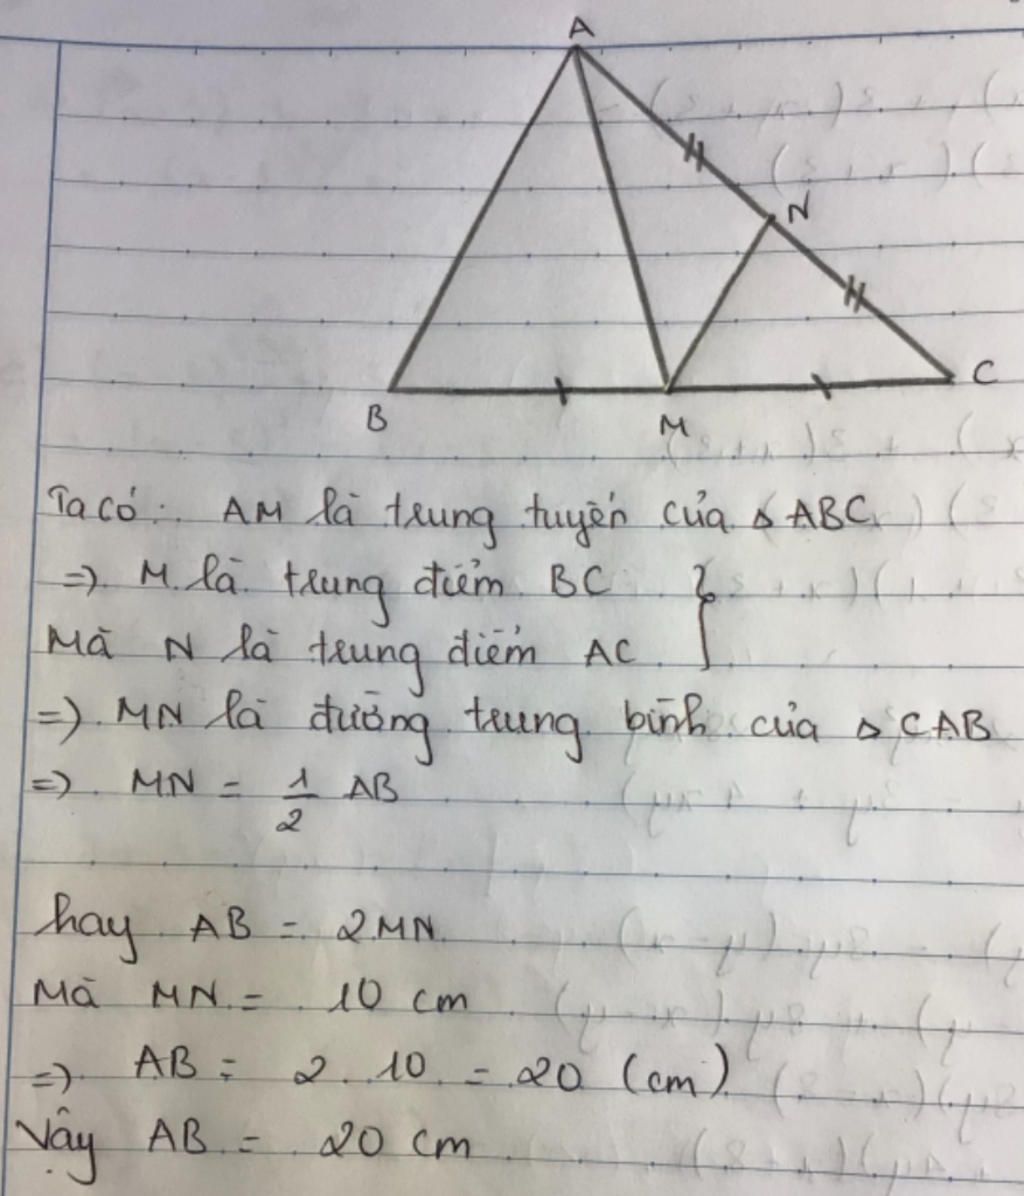 A
N
B
M
C
Ta có: AM là trung tuyến của Δ ABC
=> M là trung điểm BC }
Mà N là trung điểm AC
=> MN là đường trung bình của Δ CAB
=> MN = 1/2 AB
hay AB = 2MN
Mà MN = 10 cm
=> AB = 2.10 = 20 (cm)
Vậy AB = 20 cm